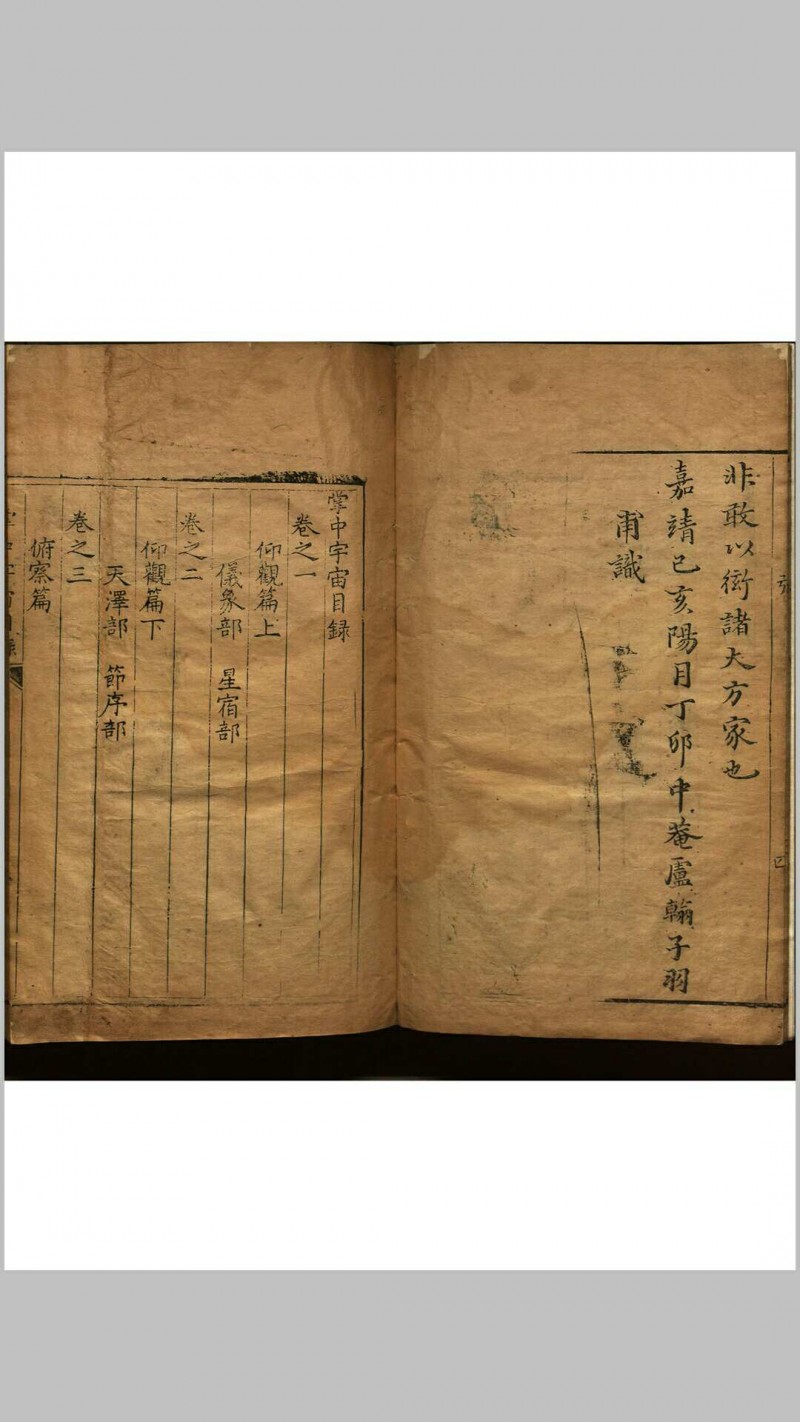 非敢以衒諸大方家也
嘉靖己亥陽月丁卯中菴盧翰子羽
甫識
四
掌中宇宙目録
卷之一
仰觀篇上
儀象部 星宿部
卷之二
仰觀篇下
天澤部 節序部
卷之三
俯察篇